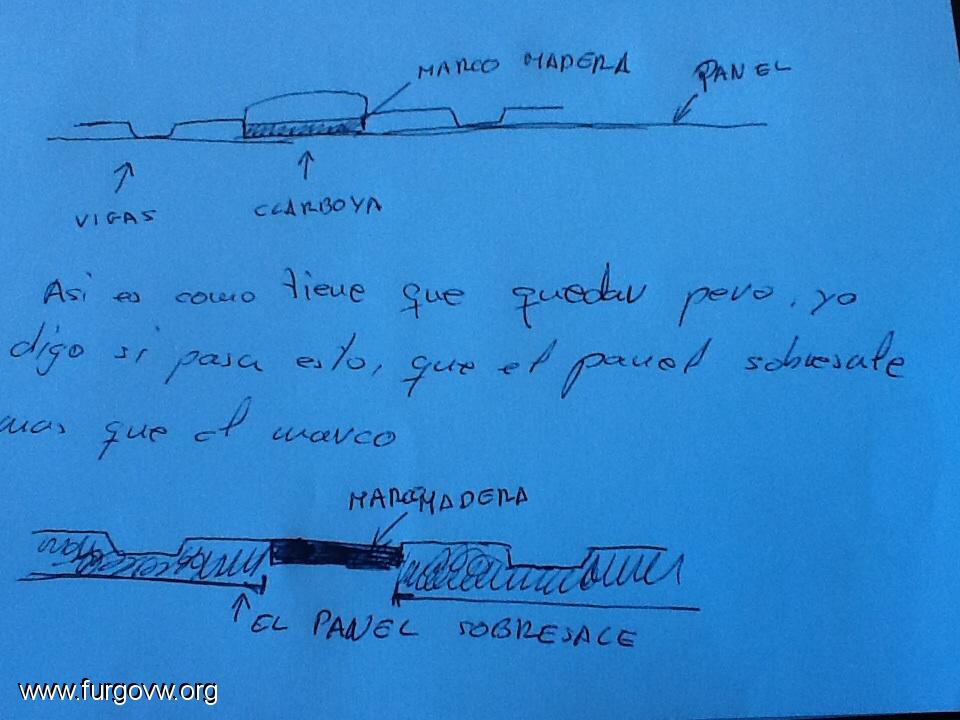 MARCO MADERA
PANEL
VIGAS
CLARBOYA
Asi es como tiene que quedar pero, yo
digo si pasa esto, que el panel sobresale
mas que el marco
MARCO MADERA
EL PANEL SOBRESALE
www.furgovw.org